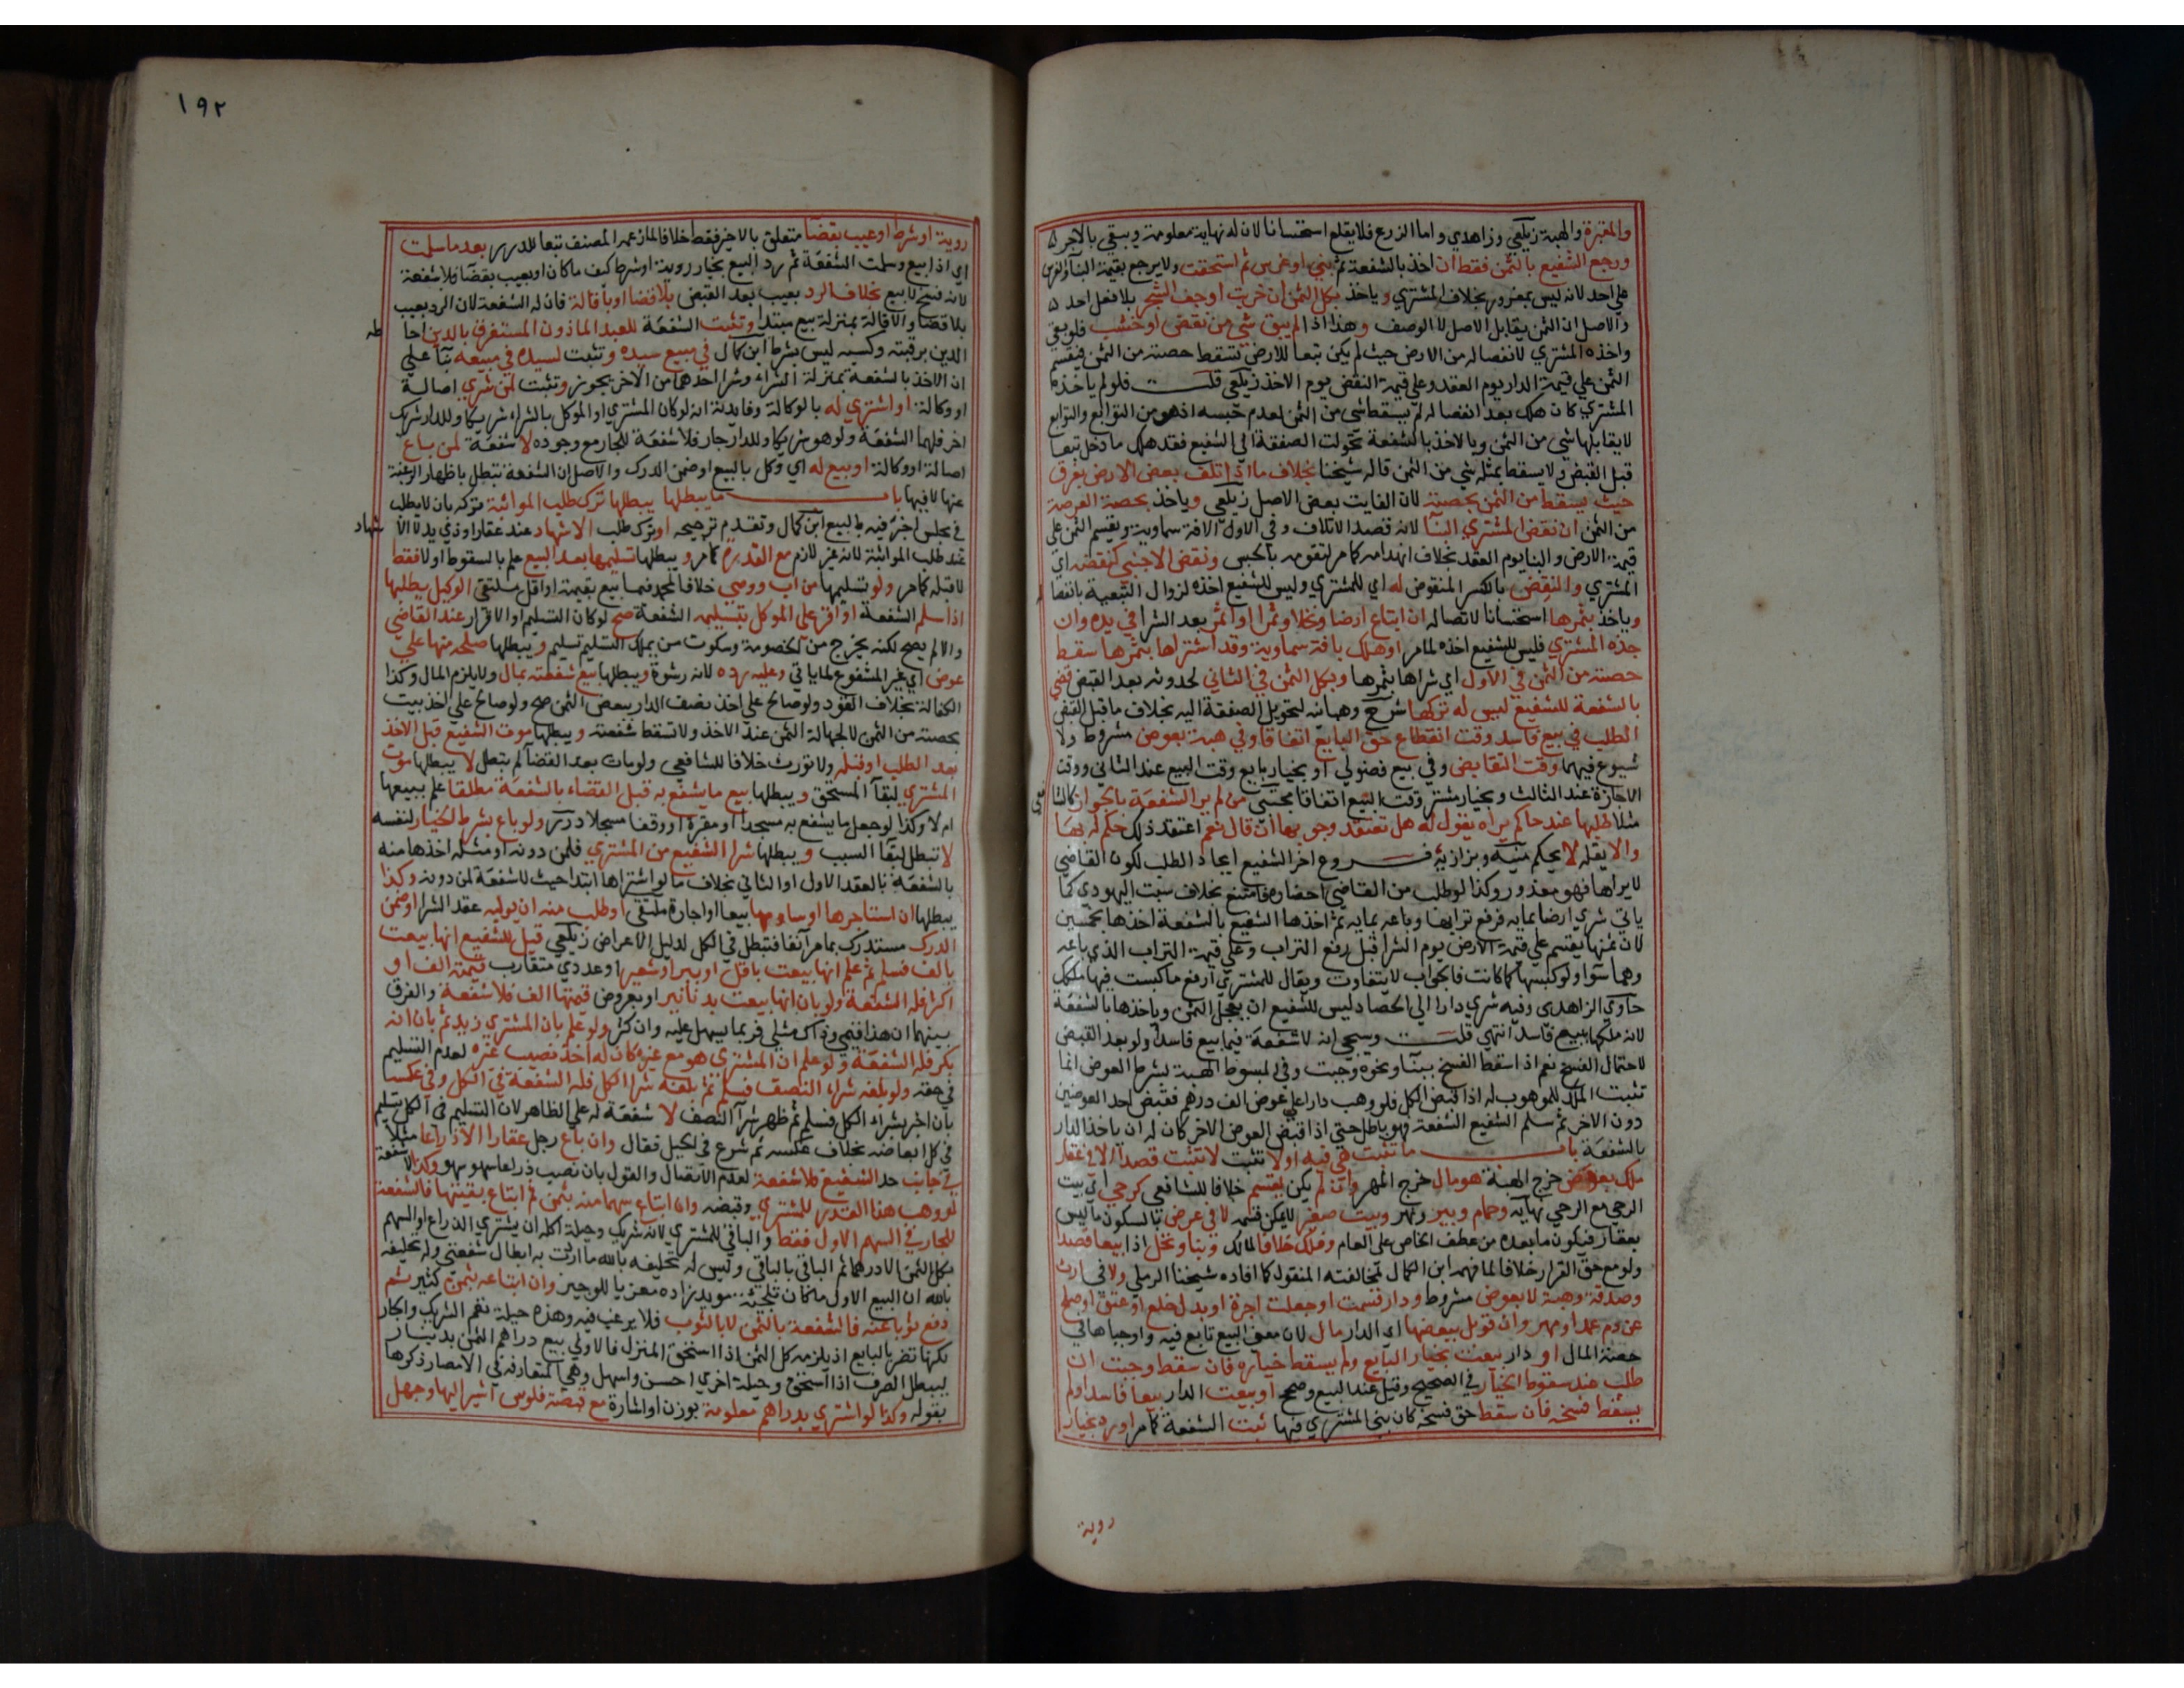 والمقبرة والهبة زيلعي وزاهدي واما الزرع فلا يقلع استحسانا لان له نهاية معلومة ويبقي بالاجر
ورجع الشفيع بالثمن فقط ان اخذ بالشفعة ثم بني او غرس ثم استحقت ولا يرجع بقيمة البنآ والغرس
علي احد لانه ليس بمغرور بخلاف المشتري وياخذ بكل الثمن ان خربت او جف الشجر بلا فعل احد
والاصل ان الثمن يقابل الاصل لا الوصف وهذا اذا لم يبق شي من نقض او خشب فلو بقي
واخذه المشتري لانفصاله من الارض حيث لم يكن تبعا للارض تسقط حصته من الثمن فيقسم
الثمن علي قيمة الدار يوم العقد وعلي قيمة النقض يوم الاخذ زيلعي قلت فلو لم ياخذه
المشتري كان هلك بعد انفصاله لم يسقط شي من الثمن لعدم حبسه اذ هو من التوابع والتوابع
لا يقابلها شي من الثمن وبالاخذ بالشفعة تحولت الصفقة الي الشفيع فقد هلك ما دخل تبعا
قبل القبض ولا يسقط بمثله شي من الثمن قاله شيخنا بخلاف ما اذا تلف بعض الارض بغرق
حيث يسقط من الثمن بحصته لان الفايت بعض الاصل زيلعي وياخذ بحصة العرصة
من الثمن ان نقض المشتري البنآ لانه قصد الاتلاف وفي الاول الافة سماوية ويقسم الثمن علي
قيمة الارض والبنا يوم العقد بخلاف انهدامه كما مر لتقومه بالحبس ونقض الاجنبي كنقضه اي
المشتري والنقض بالكسر المنقوض له اي للمشتري وليس للشفيع اخذه لزوال التبعية بانفصا
وياخذ بثمرها استحسانا لاتصاله ان ابتاع ارضا ونخلا وثمرا او اثمر بعد الشرا في يده وان
جذه المشتري فليس للشفيع اخذه لما مر او هلك بافة سماوية وقد اشتراها بثمرها سقط
حصته من الثمن في الاول اي شراها بثمرها وبكل الثمن في الثاني لحدوثه بعد القبض قضي
بالشفعة للشفيع ليس له تركها شرح وهبانيه لتحويل الصفقة اليه بخلاف ما قبل القبض
الطلب في بيع فاسد وقت انقطاع حق البايع اتفاقا وفي هبة بعوض مشروط ولا
شيوع فيهما وقت التقابض وفي بيع فضولي او بخيار بايع وقت البيع عند الثاني ووقت
الاجازة عند الثالث وبخيار مشتر وقت البيع اتفاقا مجتبي من لم ير الشفعة بالجوار كالشا
فعي
مثلا طلبها عند حاكم يراه يقول له هل تعتقد وجوبها ان قال نعم اعتقد ذلك حكم له بها
والا يقله لا يحكم منيه وبزازية فـــروع اخر الشفيع ايجاد الطلب لكون القاضي
لا يراها فهو معذور وكذا لو طلب من القاضي احضاره فامتنع بخلاف سبت اليهودي كما
ياتي شري ارضا بمايه فرفع ترابها وباعه بمايه ثم اخذها الشفيع بالشفعة اخذها بخمسين
لان ثمنها يقسم علي قيمة الارض يوم الشرا قبل رفع التراب وعلي قيمة التراب الذي باعه
وهما سوا ولو كبسها كما كانت فالجواب لا يتفاوت ويقال للمشتري ارفع ما كبست فيها ملكك
حاوي الزاهدي وفيه شري دارا الي الحصاد ليس للشفيع ان يعجل الثمن وياخذها بالشفعة
لانه ملكها ببيع فاسد انتهي قلت وسيجي انه لا شفعة فيما بيع فاسدا ولو بعد القبض
لاحتمال الفسخ نعم اذا سقط الفسخ ببنآ ونحوه وجبت وفي المبسوط الهبة بشرط العوض انما
تثبت الملك للموهوب له اذا قبض الكل فلو وهب دارا علي عوض الف درهم فقبض احد العوضين
دون الاخر ثم سلم الشفيع الشفعة فهو باطل حتي اذا قبض العوض الاخر كان له ان ياخذ الدار
بالشفعة بابـــ ما تثبت هي فيه او لا تثبت لا تثبت قصدا الا في عقار
ملك بعوض خرج الهبة هو مال خرج المهر وان لم يكن يقسم خلافا للشافعي كرحي اي بيت
الرحي مع الرحي نهايه وحمام وبير ونهر وبيت صغير لا يمكن قسمه لا في عرض بالسكون ما ليس
بعقار فيكون ما بعده من عطف الخاص علي العام وفلك خلافا لمالك وبنا ونخل اذا بيعا قصدا
ولو مع حق القرار خلافا لما فهمه ابن الكمال لمخالفته المنقول كما افاده شيخنا الرملي ولا في ارث
وصدقة وهبة لا بعوض مشروط ودار قسمت او جعلت اجرة او بدل خلع او عتق او صلح
عن دم عمد او مهر وان قوبل ببعضها اي الدار مال لان معني البيع تابع فيه واوجباها في
حصة المال او دار بيعت بخيار البايع ولم يسقط خياره فان سقط وجبت ان
طلب عند سقوط الخيار في الصحيح وقيل عند البيع وصحح او بيعت الدار بيعا فاسدا ولم
يسقط فسخه فان سقط حق فسخه كان بني المشتري فيها ثبت الشفعة كما مر او رد بخيار
روية
١٩٢
روية او شرط او عيب بقضآ متعلق بالاخير فقط خلافا لما زعمه المصنف تبعا للدرر بعد ما سلمت
اي اذا بيع وسلمت الشفعة ثم رد البيع بخيار روية او شرط كيف ما كان او بعيب بقضآ فلا شفعة
لانه فسخ لا بيع بخلاف الرد بعيب بعد القبض بلا قضا او باقالة فان له الشفعة لان الرد بعيب
بلا قضا والاقالة بمنزلة بيع مبتدا وتثبت الشفعة للعبد الماذون المستغرق بالدين احا
طه
الدين برقبته وكسبه ليس بشرط ابن كمال في مبيع سيده وتثبت لسيده في مبيعه بنآ علي
ان الاخذ بالشفعة بمنزلة الشراء وشرا احدهما من الاخر يجوز وتثبت لمن شري اصالة
او وكالة او اشتري له بالوكالة وفايدته انه لو كان المشتري او الموكل بالشراء شريكا وللدار شريك
اخر فلهما الشفعة ولو هو شريكا وللدار جار فلا شفعة للجار مع وجوده لا شفعة لمن باع
اصالة او وكالة او بيع له اي وكل بالبيع او ضمن الدرك والاصل ان الشفعة تبطل باظهار الرغبة
عنها لا فيها بابـــ ما يبطلها يبطلها ترك طلب المواثبة تركه بان لا يطلب
في مجلس اخبر فيه بالبيع ابن كمال وتقدم ترجيحه او ترك طلب الاشهاد عند عقار او ذي يد لا الا
شهاد
عند طلب المواثبة لانه غير لازم مع القدرة كما مر ويبطلها تسليمها بعد البيع علم بالسقوط او لا فقط
لا قبله كما مر ولو تسليمها من اب ووصي خلافا لمحمد فيما بيع بقيمته او اقل ملتقي الوكيل بطلبها
اذا سلم الشفعة او اقر علي الموكل بتسليمه الشفعة صح لو كان التسليم او الاقرار عند القاضي
والا لم يصح لكنه يخرج من الخصومة وسكوت من يملك التسليم تسليم ويبطلها صلحه منها علي
عوض اي غير المشفوع لما ياتي وعليه رده لانه رشوة ويبطلها بيع شفعته بمال ولا يلزم المال وكذا
الكفالة بخلاف القود ولو صالح علي اخذ نصف الدار ببعض الثمن صح ولو صالح علي اخذ بيت
بحصته من الثمن لا لجهالة الثمن عند الاخذ ولا تسقط شفعته ويبطلها موت الشفيع قبل الاخذ
بعد الطلب او قبله ولا تورث خلافا للشافعي ولو مات بعد القضآ لم تبطل لا يبطلها موت
المشتري لبقآ المستحق ويبطلها بيع ما يشفع به قبل القضاء بالشفعة مطلقا علم ببيعها
ام لا وكذا لو جعل ما يشفع به مسجدا او مقبرة او وقفا مسجلا درر ولو باع بشرط الخيار لنفسه
لا تبطل لبقآ السبب ويبطلها شرا الشفيع من المشتري فلمن دونه او مثله اخذها منه
بالشفعة بالعقد الاول او الثاني بخلاف ما لو اشتراها ابتدا حيث لا شفعة لمن دونه وكذا
يبطلها ان استاجرها او ساومها بيعا او اجارة ملتقي او طلب منه ان يوليه عقد الشرا او ضمن
الدرك مستدرك بما مر آنفا فتبطل في الكل لدليل الاعراض زيلعي قيل للشفيع انها بيعت
بالف فسلم ثم علم انها بيعت باقل او ببر او شعير او عددي متقارب قيمته الف او
اكثر فله الشفعة ولو بان انها بيعت بدنانير او بعروض قيمتها الف فلا شفعة والفرق
بينهما ان هذا قيمي وذاك مثلي فربما يسهل عليه وان كثر ولو علم بان المشتري زيد ثم بان انه
بكر فله الشفعة ولو علم ان المشتري هو مع غيره كان له اخذ نصيب غيره لعدم التسليم
في حقه ولو بلغه شراء النصف فسلم ثم بلغه شرا الكل فله الشفعة في الكل وفي عكسه
بان اخبر بشراء الكل فسلم ثم ظهر شرآ النصف لا شفعة له علي الظاهر لان التسليم في الكل تسليم
في كل ابعاضه بخلاف عكسه ثم شرع في الحيل فقال وان باع رجل عقارا الا ذراعا مثلا
في جانب حد الشفيع فلا شفعة لعدم الاتصال والقول بان نصب ذراعا سهو سهو وكذا لا شفعة
لو وهب هذا القدر للمشتري وقبضه وان ابتاع سهما منه بثمن ثم ابتاع بقيتها فالشفعة
للجار في السهم الاول فقط والباقي للمشتري لانه شريك وحيلة كله ان يشتري الذراع او السهم
بكل الثمن الا درهما ثم الباقي بالباقي وليس له تحليفه بالله ما اردت به ابطال شفعتي وله تحليفه
بالله ان البيع الاول ما كان تلجئة مويد زاده معزيا للوجيز وان ابتاعه بثمن كثير ثم
دفع ثوبا عنه فالشفعة بالثمن لا بالثوب فلا يرغب فيه وهذه حيلة تعم الشريك والجار
لكنها تضر بالبايع اذ يلزمه كل الثمن اذا استحق المنزل فالاولي بيع دراهم الثمن بدينار
ليبطل الصرف اذا استحق وحيلة اخري احسن واسهل وهي المتعارفة في الامصار ذكرها
بقوله وكذا لو اشتري بدراهم معلومة بوزن او اشارة مع قبضة فلوس اشير اليها وجهل